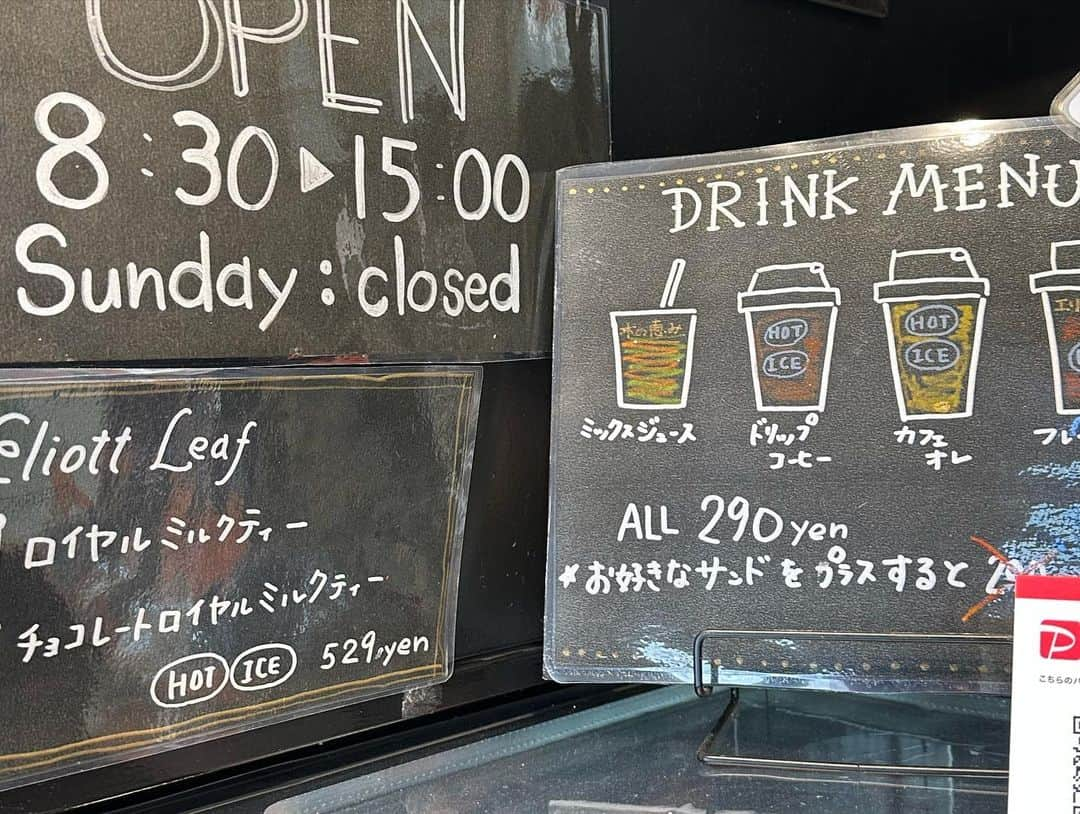 OPEN
8:30▶15:00
Sunday:closed
Eliott Leaf
ロイヤルミルクティー
チョコレートロイヤルミルクティー
HOT ICE 529yen
DRINK MENU
木の恵み
HOT
ICE
HOT
ICE
ミックスジュース
ドリップ
コーヒー
カフェ
オレ
フレ
ALL 290yen
*お好きなサンドをプラスすると
P
こちらの